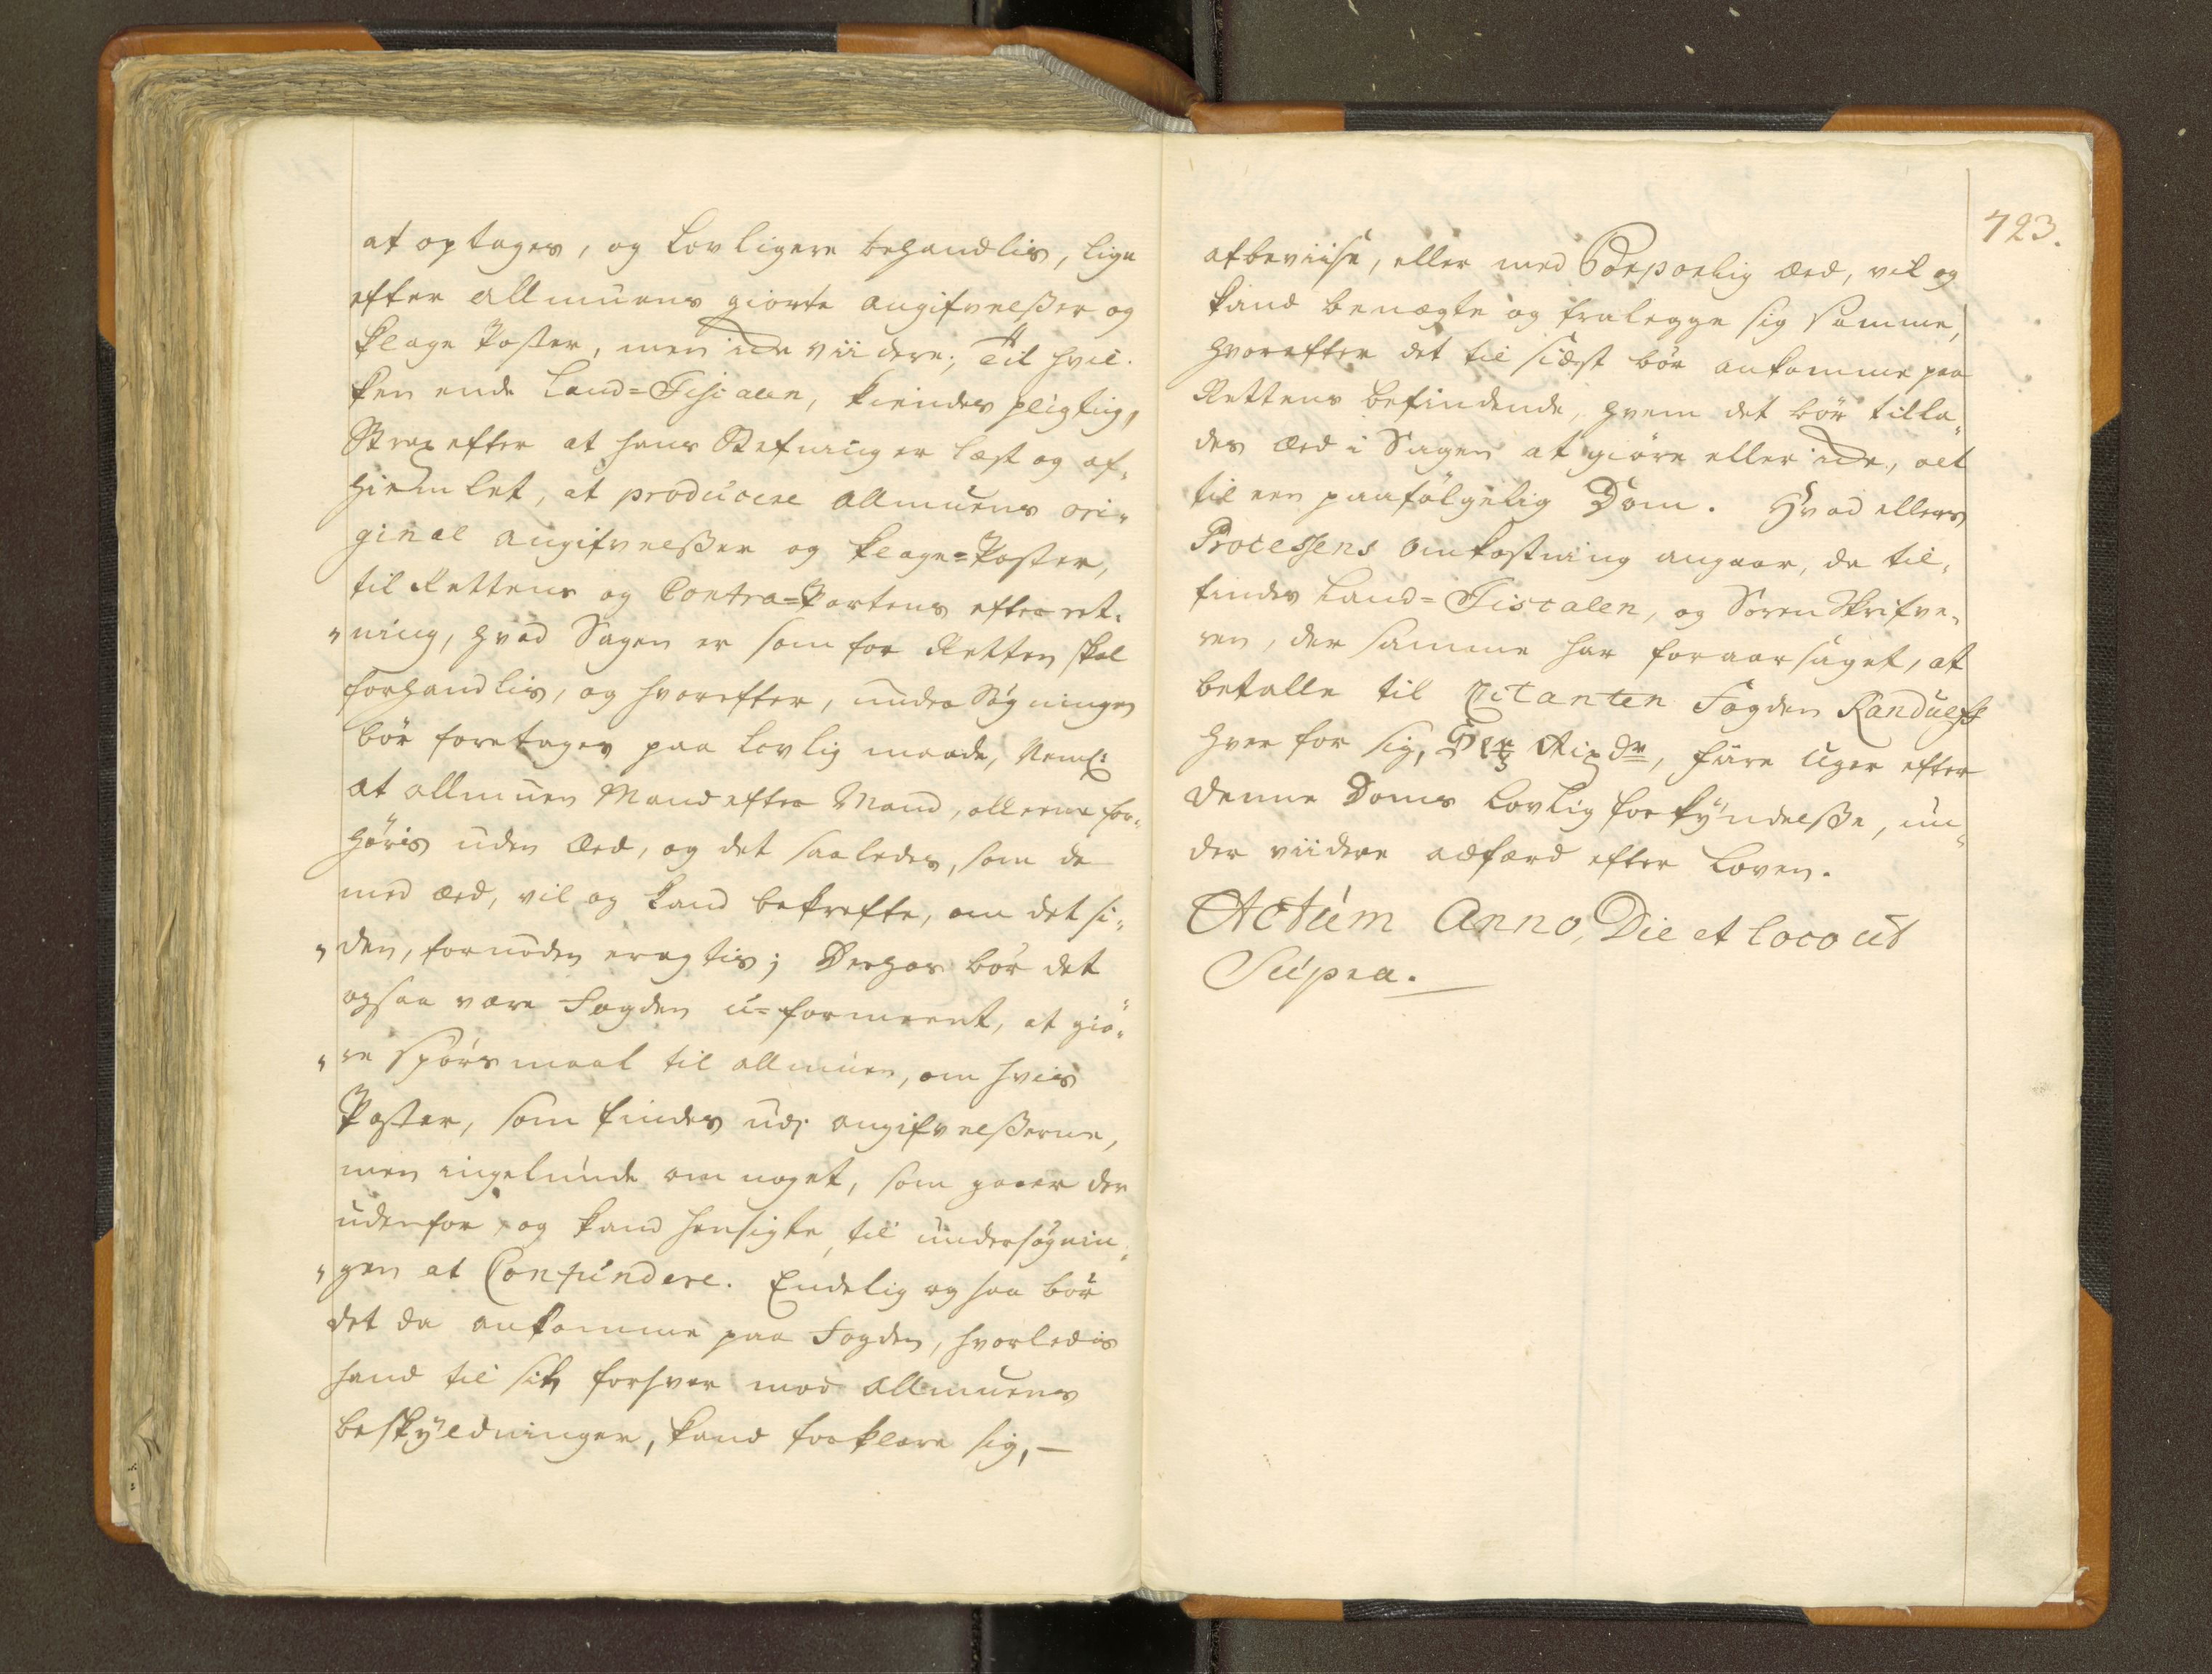 at optages, og Lovligere behandlis, lige
efter Allmuens giorte angifvelßer og
Klage Poster, men icke viidere; Til hvil-
ken ende Land=Fiscalen, kiendes pligtig,
Strax efter at hans Stefning er læst og af-
hiemlet, at producere Allmuens ori-
ginal angifvelßer og Klage=Poster,
til Rettens og Contra=Partens efterret-
ning, hvad Sagen er som for Retten skal
forhandlis, og hvorefter, undersøgningen
bør foretages paa lovlig maade, Neml:
at allmuen Mand efter Mand, allene for-
høris uden Eed, og det saaledes, som de
med Eed, vil og kand bekrefte, om det si-
den, fornøden eragtis; Derhos bør det
ogsaa være Fogden u=formeent, at giø-
re Spørsmaal til allmuen, om hvis
Poster, som findes udj angifvelßerne,
men ingelunde om noget, som gaaer der
udenfor, og kand hensigte, til undersøgnin-
gen at Confundere. Endelig og saa bør
det da ankomme paa Fogden, hvorledis
hand til sit forsvar mod Allmuens
beskyldninger, kand forklare sig, —
723.
afbeviise, eller med Corporlig Eed, vil og
kand benægte og fralegge sig samme,
hvorefter det til sidst bør ankomme paa
Rettens befindende, hvem det bør tilla-
des Eed i Sagen at giøre eller icke, alt
til een paafølgelig Dom. Hvad ellers
Processens Omkostning angaar, da til-
findes Land=Fiscalen, og Soren Skrifve-
ren, der samme har foraarsaget, at
betalle til Citanten Fogden Randulff
hver for sig, Rixdr, fiire Uger efter
denne Doms Lovlig forkyndelße, un-
der viidere adfærd efter Loven.
Actum Anno, Die et loco ut
Supra.